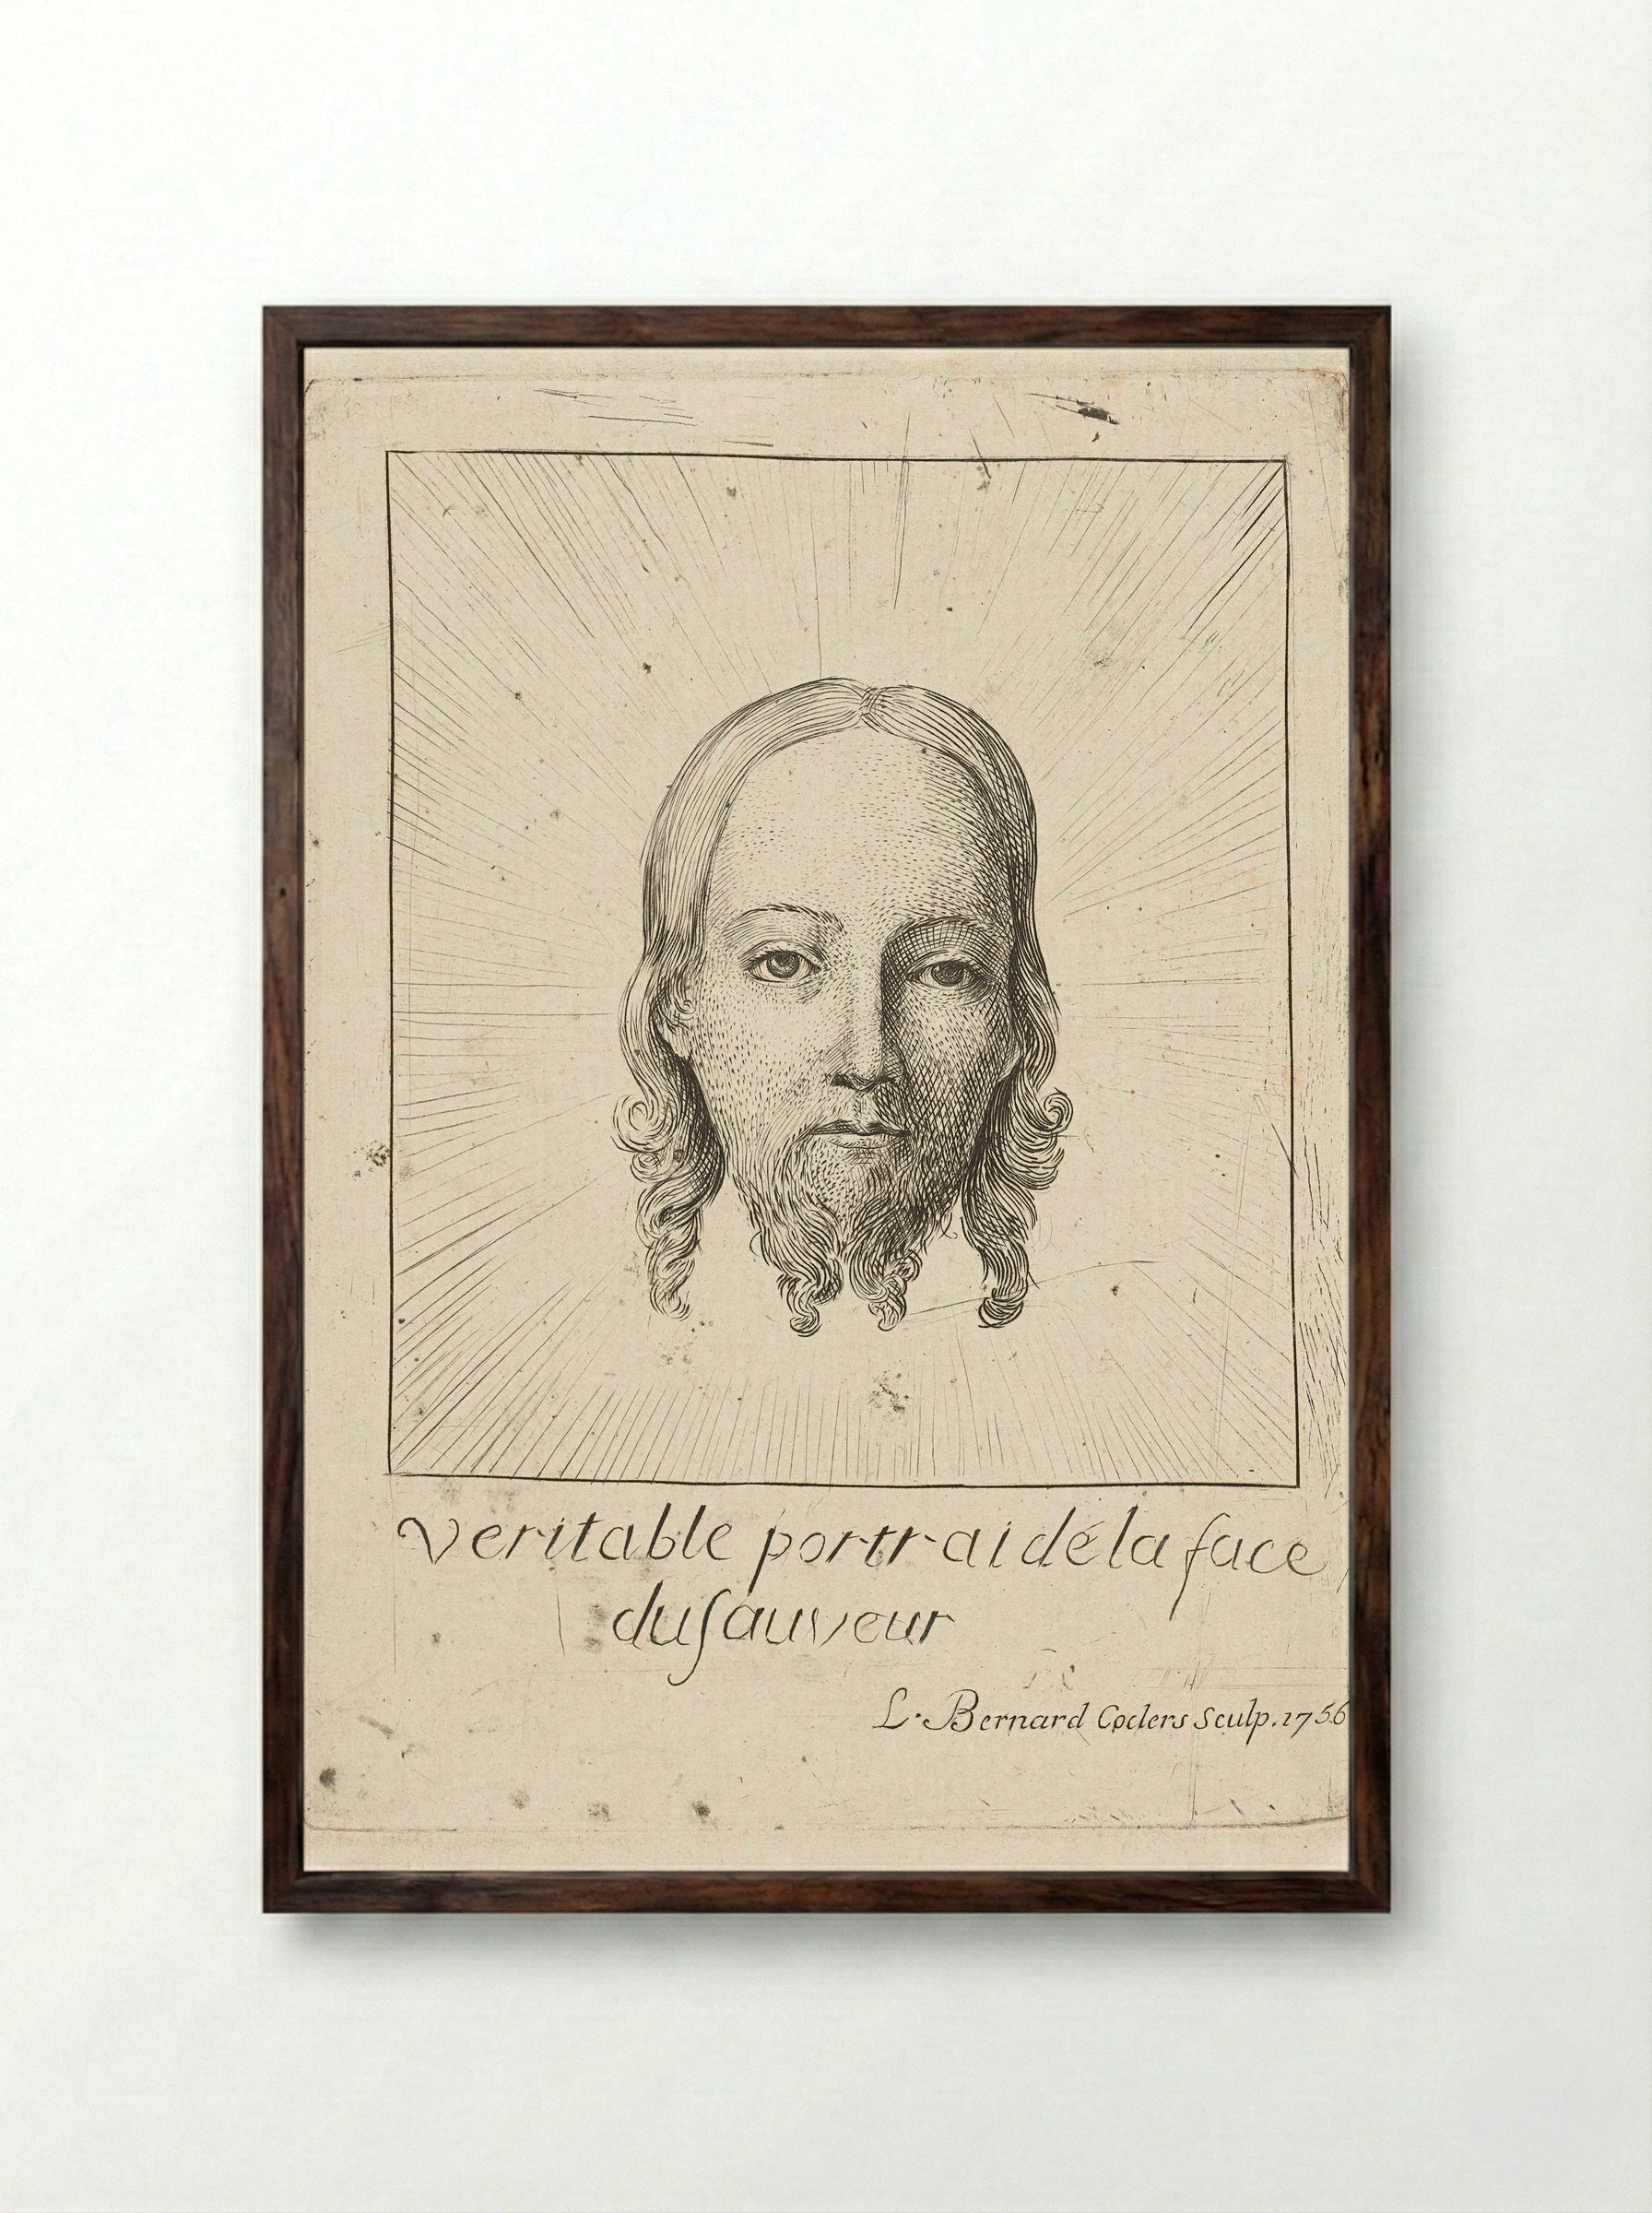 veritable portrai de la face
du sauveur
L. Bernard Coclers Sculp. 1756